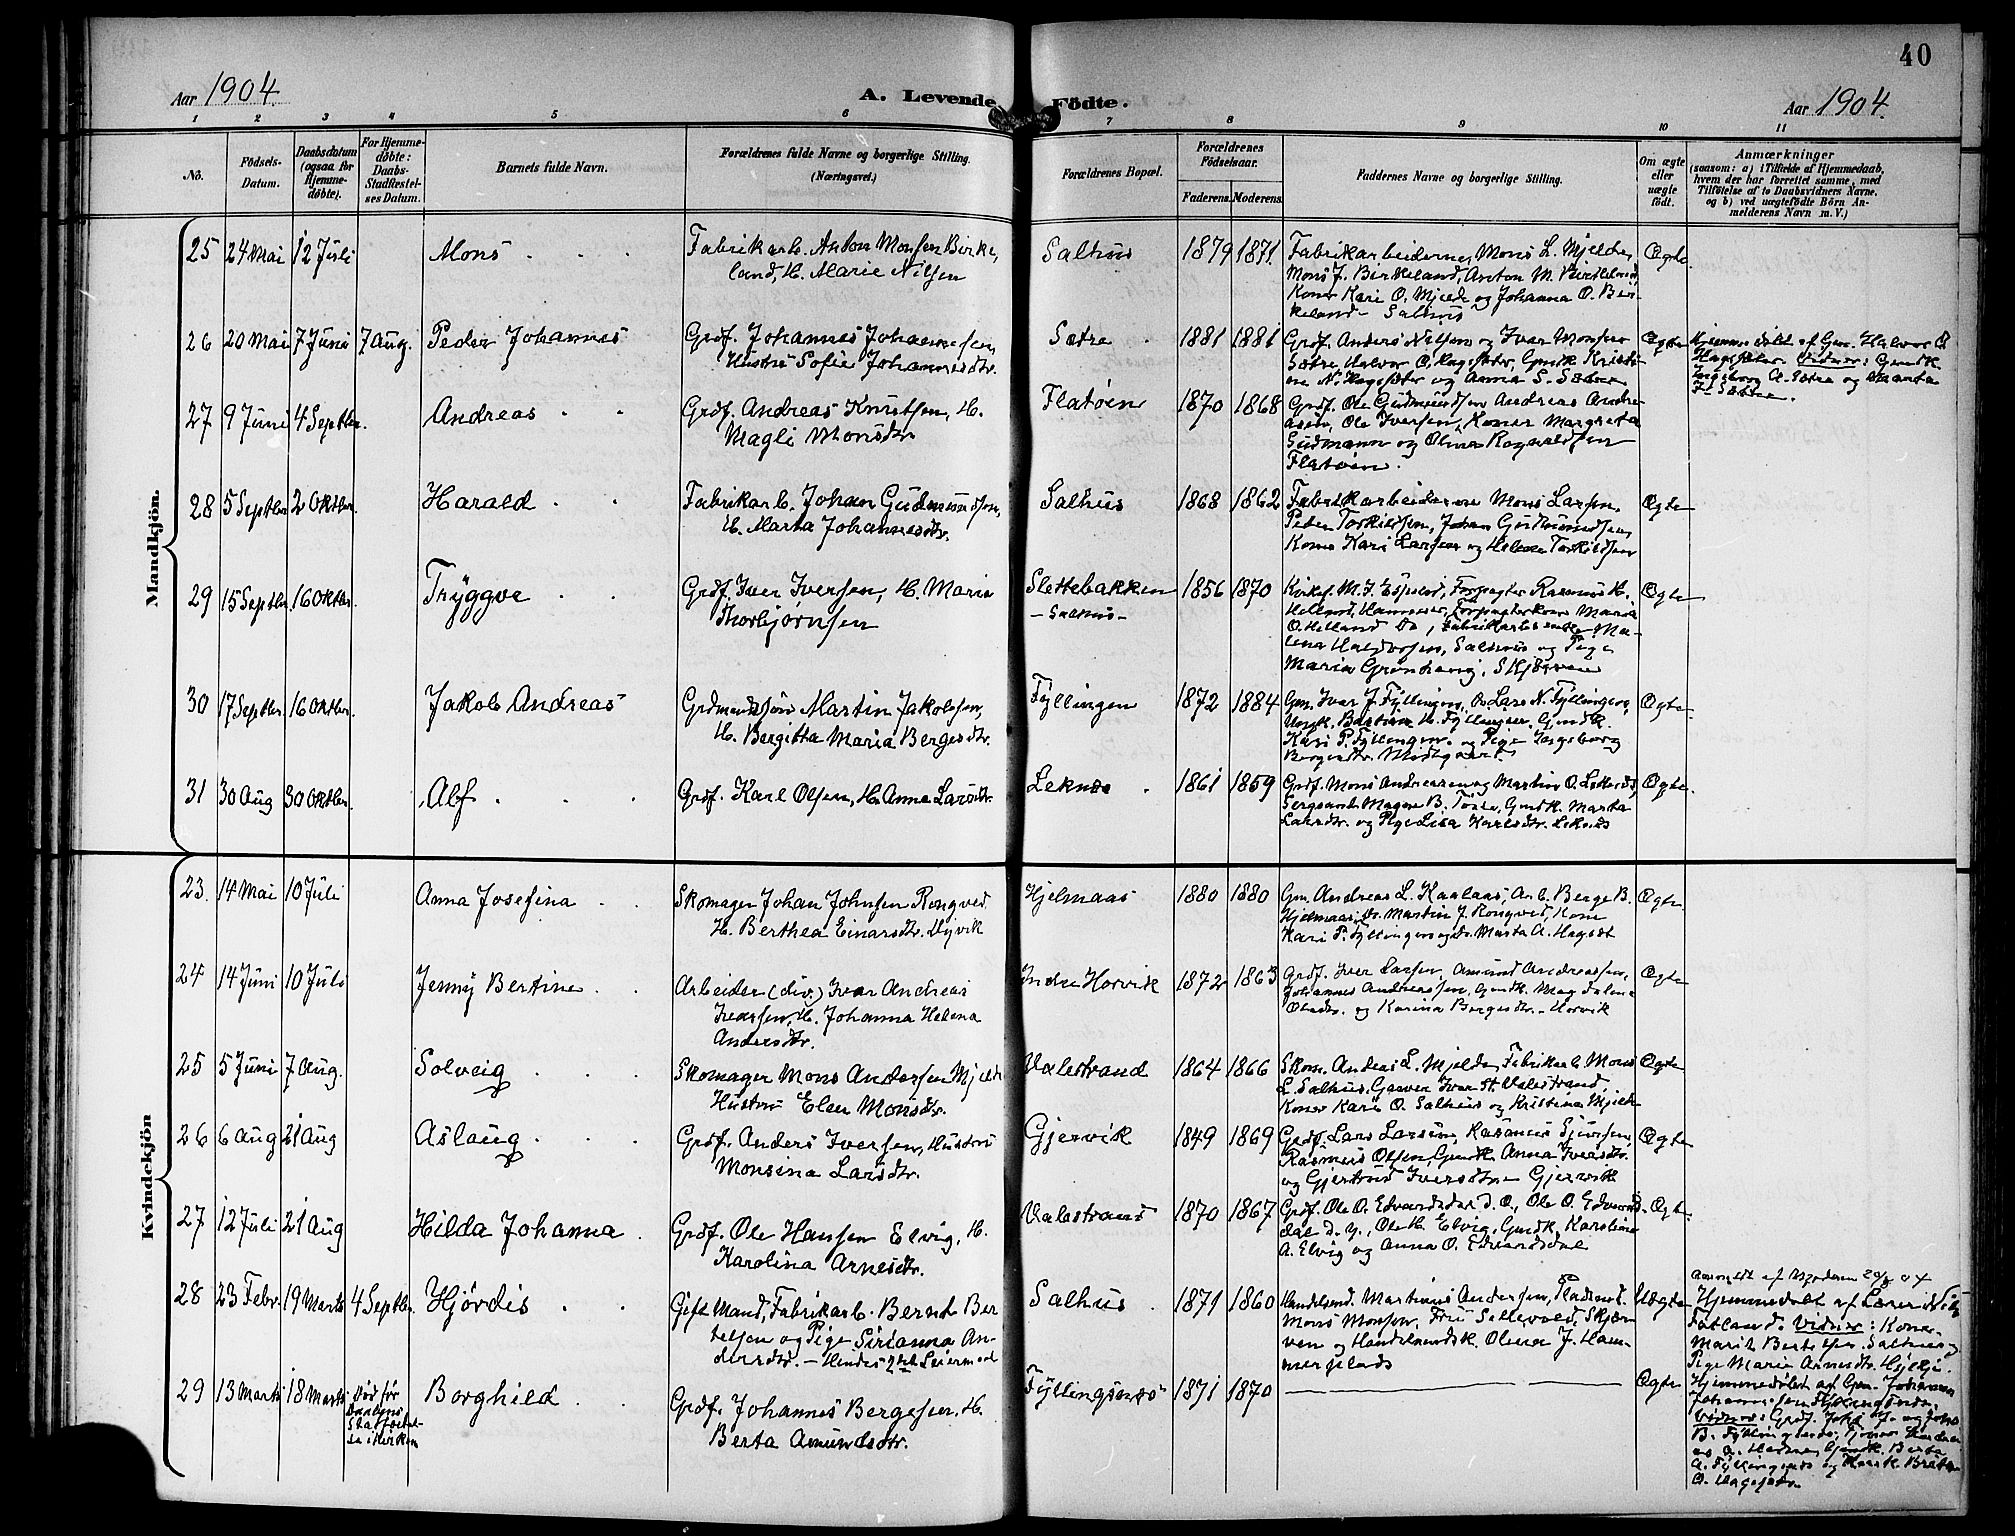 40
Aar 1904.
A. Levende Födte.
Aar 1904.
1 2 3 4 5 6 7 8 9 10 11
No.
Födsels-Datum.
Daabsdatum (ogsaa for Hjemme-döbte).
For Hjemme-döbte: Daabs-Stadfæstel-ses Datum.
Barnets fulde Navn.
Forældrenes fulde Navne og borgerlige Stilling. (Næringsvei.)
Forældrenes Bopæl.
Forældrenes Födselsaar.
Faderens. Moderens.
Faddernes Navne og borgerlige Stilling.
Om ægte eller uægte födt.
Anmærkninger
(saasom: a) i Tilfælde af Hjemmedaab,
hvem der har forrettet samme, med
Tilföielse af to Daabsvidners Navne,
og b) ved uægtefödte Börn An-
melderens Navn m. V.)
Mandkjön.
25 24 Mai 12 Juli Mons Fabrikarb. Anton Monsen Birke-
land, H. Marie Nilsen
Salhus 1879 1871. Fabrikarbeiderne, Mons L. Mjelde,
Mons J. Birkeland, Anton M. Birkeland,
Koner Kari O. Mjelde og Johanna O. Bir-
keland Salhus
Ægte.
26 20 Mai 7 Juni 7 Aug. Peder Johannes Grdf. Johannes Johannesen,
Hustru Sofie Johannesdtr.
Sætre 1881 1881 Grdf. Anders Nilsen og Ivar Monsen
Sætre, Halvor O. Hagesæter, Gmdk. Kristi-
ne N. Hagesæter og Anna S. Sætre
Ægte
Hjemmedøbt af Gm. Halvor O.
Hagesæter. Vidner: Gmdk.
Ingeborg A. Sætre og Marta
J. Sætre.
27 9 Juni 4 Septbr. Andreas Grdf. Andreas Knutsen, H.
Magli Monsdtr.
Flatøen 1870 1868 Grdf. Ole Gudmundsen Andreas Andre-
asen, Ole Iversen, Koner Margreta
Gudmann og Olina Ragnvaldsen
Flatøen.
28 5 Septbr 2 Oktbr. Harald Fabrikarb. Johan Gudmundsen,
H. Marta Johannesdtr.
Salhus 1868 1862 Fabrikarbeiderne Mons Larsen,
Peder Torkildsen, Johan Gudmundsen,
Koner Kari Larsen og Helene Torkildsen
Ægte
29 15 Septbr. 16 Oktbr. Tryggve Grdf. Iver Iversen, H. Maria
Thorbjørnsen
Slettebakken
- Salhus -
1856 1870 Kirkes. M. J. Espelid, Forpagter Rasmus H.
Helland, Hammer, Forpagterkone Maria
O. Helland Do, Ma-
lena Halvorsen, Salhus og Pige
Maria Skjerven
Ægte
30 17 Septbr. 16 Oktbr. Jakob Andreas Grdmandssøn Martin Jakobsen,
H. Bergitta Maria Bergesdtr.
Fyllingen 1872 1884 Gm. Ivar J. Fyllingen, Lars N. Fyllingen,
Ungk. H. Fyllingen, Gmdk.
Kari P. Fyllingen og Pige Ingeborg
Bergesdtr. Midtgaard
Ægte.
31 30 Aug 30 Oktbr. Alf Grdf. Karl Olsen, H. Anna Larsdtr.
Leknes 1861 1859 Grdf. Mons Andreasen og Martin O. Leknes,
Magne B. Gmdk. Marta
Larsdtr. og Pige Lisa Karlsdtr. Leknes
Ægte.
Kvindekjön
23. 14 Mai 10 Juli Anna Josefina Skomager Johan Johnsen Rongved
H. Berthea Einarsdtr. Dyvik
Hjelmaas 1880 1880 Gm. Andreas L. Kaalaas, Arb. Berge B.
Hjelmaas, Do. Martin J. Rongved, Kone
Kari P. Fyllingen og Do. Marta A. Hagset
Ægte.
24 14 Juni 10 Juli Jenny Bertine Arbeider (div.) Ivar Andreas
Iversen, H. Johanna Helena
Andersdtr.
Indre Horvik 1872 1863 Grdf. Iver Larsen, Amund Andreassen,
Johannes Andreassen, Gmdk. Magdalena
Olsdtr. og Karina Bergesdtr. Horvik
Ægte
25 5 Juni 7 Aug. Solveig Skomager Mons Andersen Mjelde
Hustru Elen Monsdtr.
Valestrand 1864 1866 Skom. Andreas L. Mjelde, Fabrikarb Mons
L. Salhus, Garver Ivar St. Valestrand
Koner Kari O. Salhus og Kristina Mjelde
Ægte
26 6 Aug 21 Aug Aslaug Grdf. Anders Iversen, Hustru
Monsina Larsdtr.
Gjervik 1849 1869 Grdf. Lars Larsen, Rasmus Sjursen,
Rasmus Olsen, Gmdk. Anna Iversdtr.
og Gjertrud Iversdtr Gjervik
Ægte
27 12 Juli 21 Aug Hilda Johanna Grdf. Ole Hansen Elvig, H.
Karolina Arnesdtr.
Valestrand 1870 1867 Grdf. Ole O. Edvardsdal d. O., Ole O. Edvards-
dal d. y., Ole H. Elvig, Gmdk. Karolina
A. Elvig og Anna O. Edvardsdal
Ægte.
28 23 Febr. 19 Marts 4 Septbr. Hjördis Gift Mand, Fabrikarb. Bernt Ber
telsen og Pige Sirianna An-
dersdtr. - Hendes 2det Leiermaal
Salhus 1871 1860 Handelsmd. Martinus Andersen,
Mons Monsen, Fru Sellevold, Skjer-
ven og Handelsmdsk. Olina J. Ham-
mersplads
Uægte
Anmeldt af Moderen 04
Hjemmedøbt af Lærer
Fotland. Vidner: Kone
Marit Bertelsen Salhus og
Pige Maria Arnesdtr.
29 13 Marts 18 Marts Død før
Daabens
Stadfæstel-
se i Kirken
Borghild Grdf. Johannes Bergesen, H.
Berta Amundsdtr.
Fyllingsnes 1871 1870 Ægte
Hjemmedøbt af Gm. Johannes
Johannesen Fyllingsnes.
Vidner: Grdf. J. og Johs
B. Fyllingsnes,
Gmdk. Berta
A. Fyllingsnes og
O. Hagesæter.